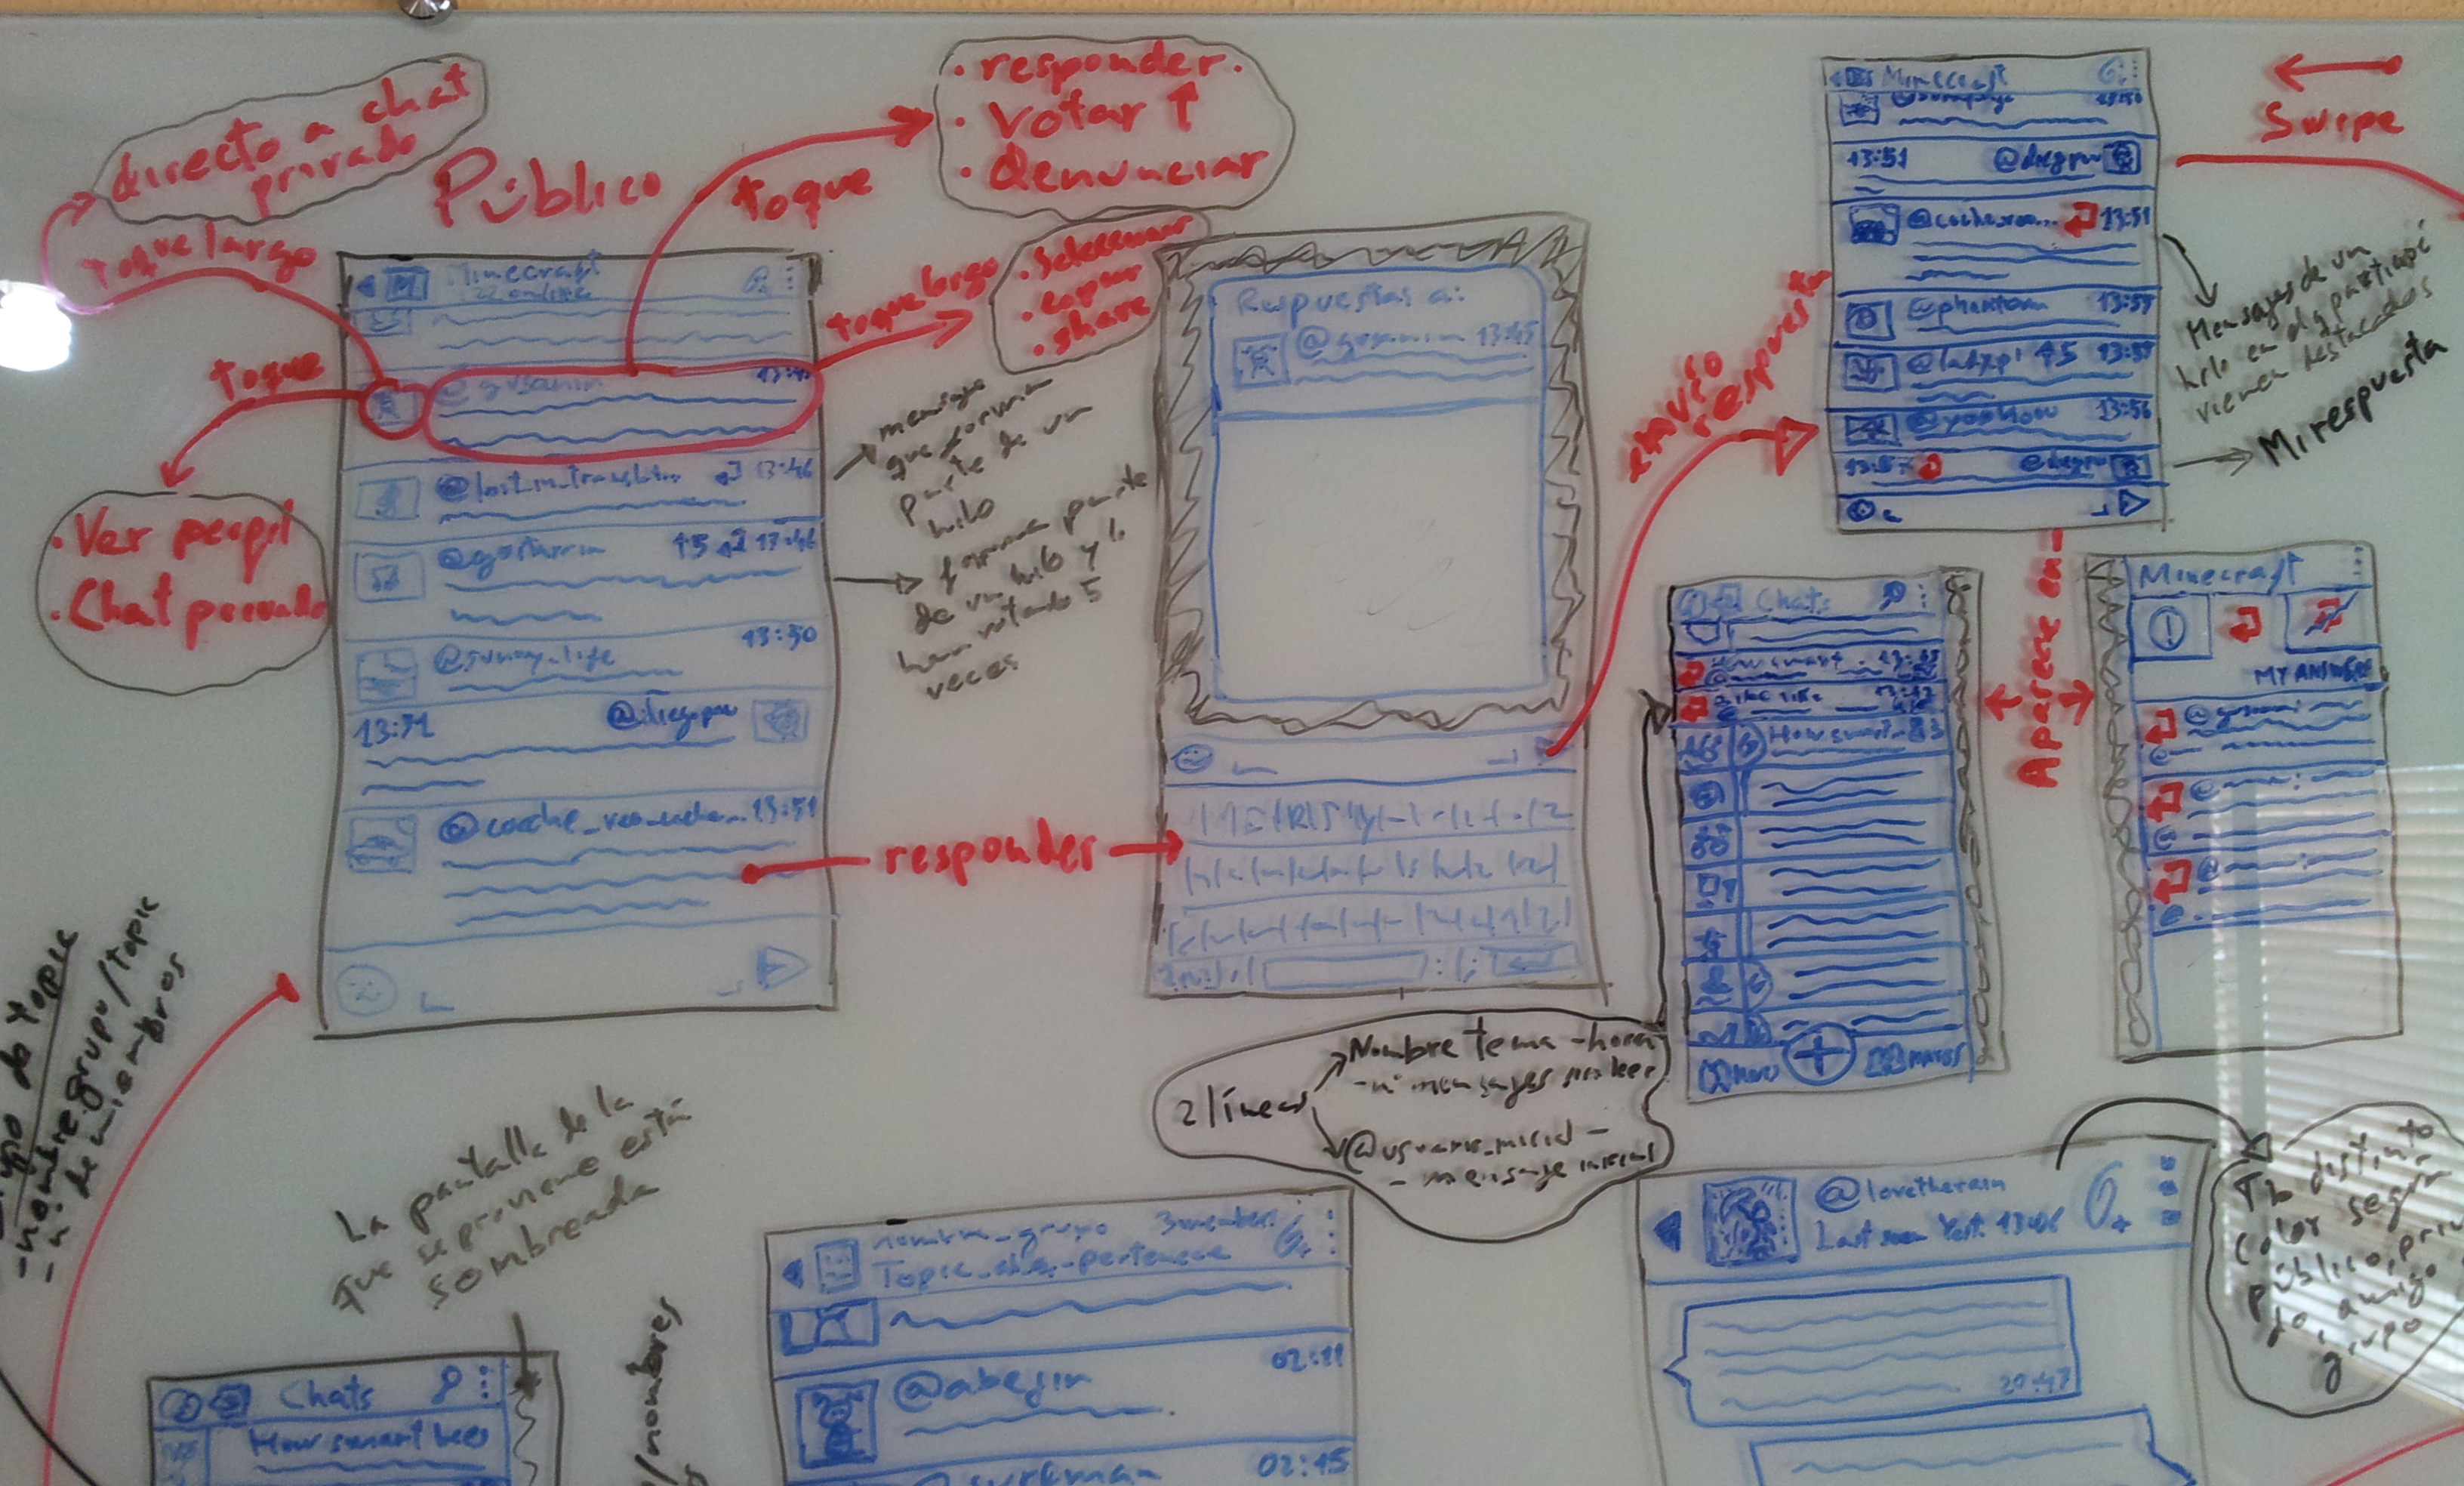 directo a chat
privado
Público
Toque largo
Toque
· Ver perfil
· Chat privado
toque
· responder.
· Votar ↑
· Denunciar
toque largo
· Seleccionar
· copiar
· share
Minecraft
@gusanin 13:45
@lost_in_translat... 13:46
@gustavin ↑5 13:46
@sunny_life 13:50
13:51 @diegopw
@coche_rco_coche... 13:51
mensaje
que forma
parte de un
hilo
forma parte
de un hilo y lo
han votado 5
veces
responder
Respuestas a:
@gusanin 13:45
envío
respuesta
Minecraft
13:51 @diegpw
@coche_roo... 13:51
@phantom 13:55
@ladypi ↑5 13:55
@yoohoou 13:56
@diegpw
Swipe
Mensajes de un
hilo en el q participé
vienen destacados
Mi respuesta
Aparece en
Chats
Minecraft
MY ANSWERS
@gusani
2 líneas
Nombre tema - hora
- nº mensajes sin leer
@usuario_inicial -
- mensaje inicial
La pantalla de la
que se proviene está
sombreada
de topic
- nombre grupo/topic
- nº de miembros
Chats
How smart bees
/nombres
nombre_grupo 3 members
Topic_al_q_pertenece
@abejin 02:11
02:15
@lovetherain
Last seen Yest. 13:06
20:47
distinto
color según
público, priva
do, amigo
grupo